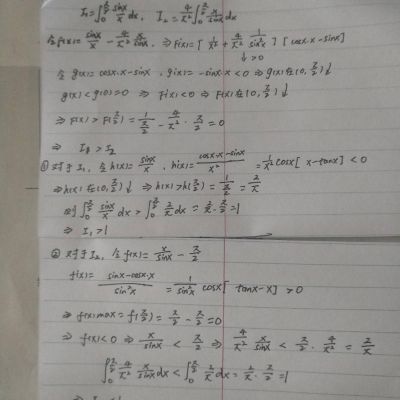 I₁=∫₀^(π/2) sinx/x dx, I₂=4/π² ∫₀^(π/2) x/sinx dx
令f(x)= sinx/x - 4/π² x/sinx, ⇒ F(x)=[ 1/x² + 4/π² 1/sin²x ] [cosx·x-sinx]
↓>0
令g(x)=cosx·x-sinx, g'(x)=-sinx·x<0 ⇒ g(x)在(0, π/2)↓
g(x)<g(0)=0 ⇒ F'(x)<0 ⇒ F(x)在(0, π/2)↓
⇒ F(x)>F(π/2)= 1/(π/2) - 4/π² · π/2 =0
⇒ I₁>I₂
① 对于I₁, 令h(x)= sinx/x, h'(x)= (cosx·x-sinx)/x² = 1/x² cosx[x-tanx]<0
⇒h(x)在(0, π/2)↓ ⇒ h(x)>h(π/2)= 1/(π/2) = 2/π
则∫₀^(π/2) sinx/x dx > ∫₀^(π/2) 2/π dx = 2/π · π/2 =1
⇒ I₁>1
② 对于I₂, 令f(x)= x/sinx - π/2
f'(x)= (sinx-cosx·x)/sin²x = 1/sin²x cosx[tanx-x]>0
⇒ f(x)max=f(π/2)= π/2 - π/2 =0
⇒ f(x)<0 ⇒ x/sinx < π/2 ⇒ 4/π² x/sinx < π/2 · 4/π² = 2/π
∫₀^(π/2) 4/π² x/sinx dx < ∫₀^(π/2) 2/π dx = 2/π · π/2 =1